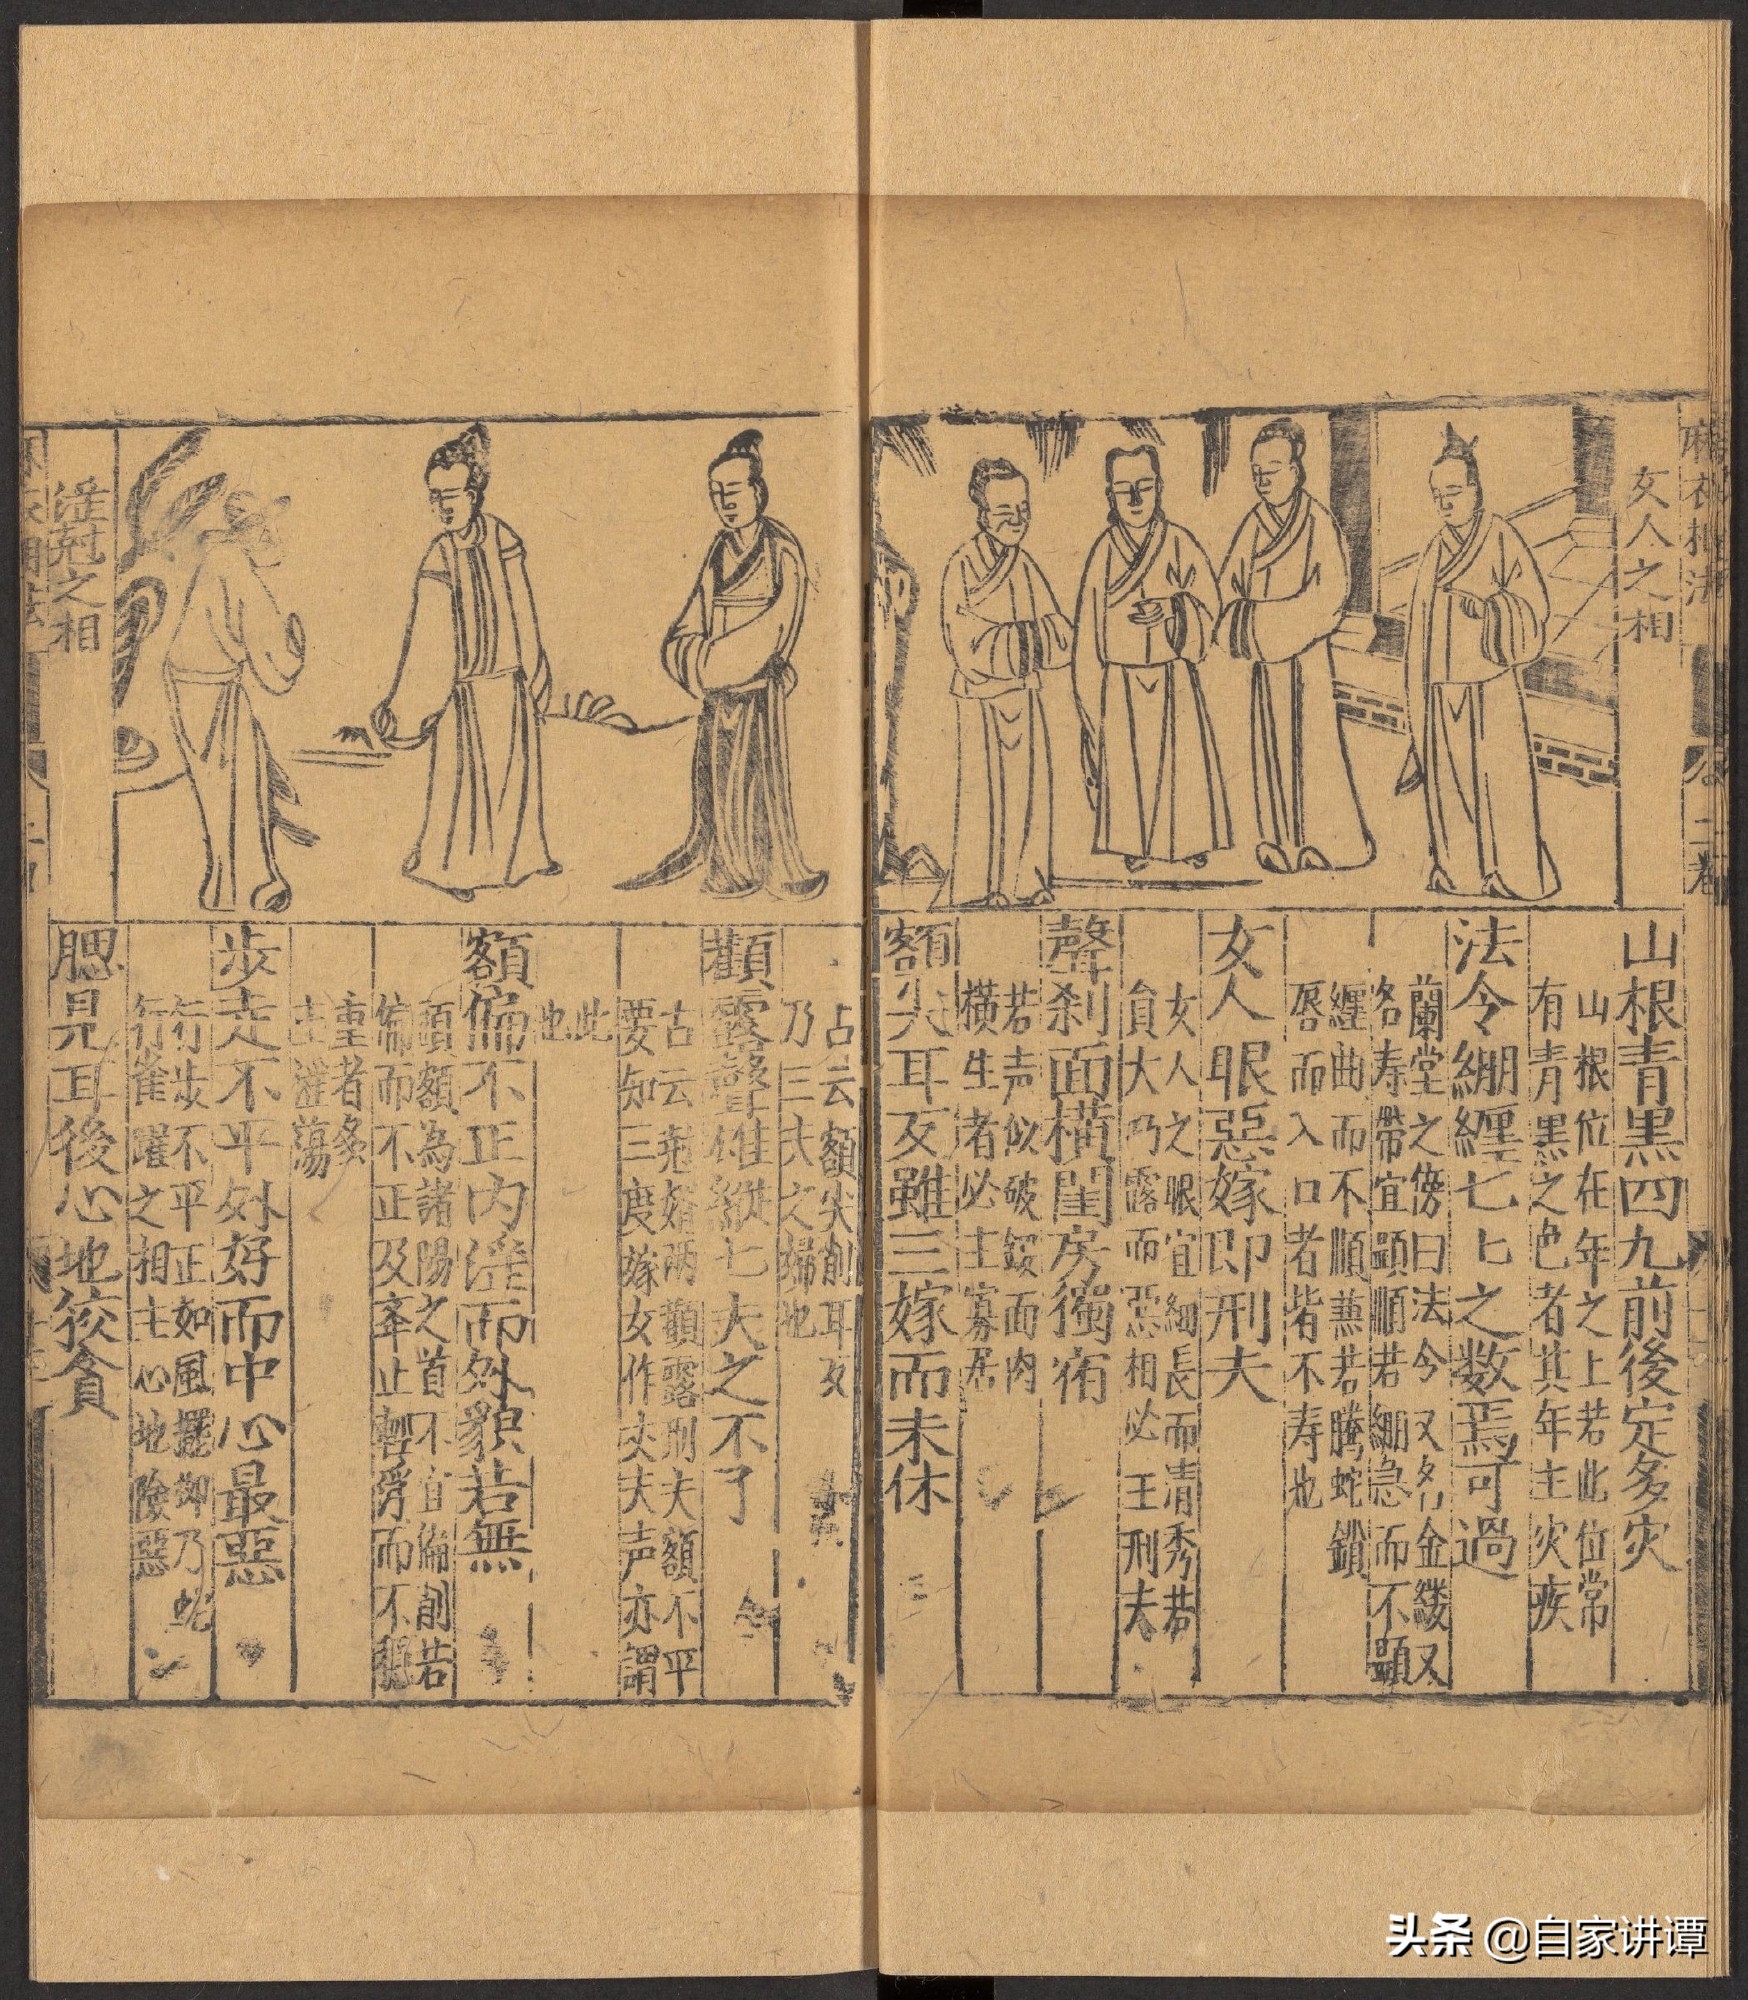 女人之相
山根青黒四九前後定多灾
山根位在年之上若此位常
有青黒之色者其年主灾疾
法令綳纏七七之数焉可過
蘭堂之傍曰法令又名金縷又
名寿帶宜顕順若綳急而不顕
纏曲而不順兼若騰蛇鎖
唇而入口者皆不寿也
女人眼惡嫁即刑夫
女人之眼宜細長而清秀若
貟大乃露而惡相必主刑夫
聲刹面横閨房獨宿
若声似破鈸面肉
横生者必主寡居
額尖耳反雖三嫁而未休
占云額尖削耳反
乃三犬之婦也
顴露聲雄縱七夫之不了
古云堯婿两顴露刑夫額不平
要知三度嫁女作丈夫声亦謂
此
也
額偏不正内滛而外貌若無
頭額為諸陽之首不宜偏削若
偏而不正及舉止輕浮而不穏
重者多
主滛蕩
步走不平外好而中心最惡
行步不平正如風擺御乃蛇
行雀躍之相主心地險惡
腮見耳後心地狡貪
滛冠之相
头条 @自家讲谭